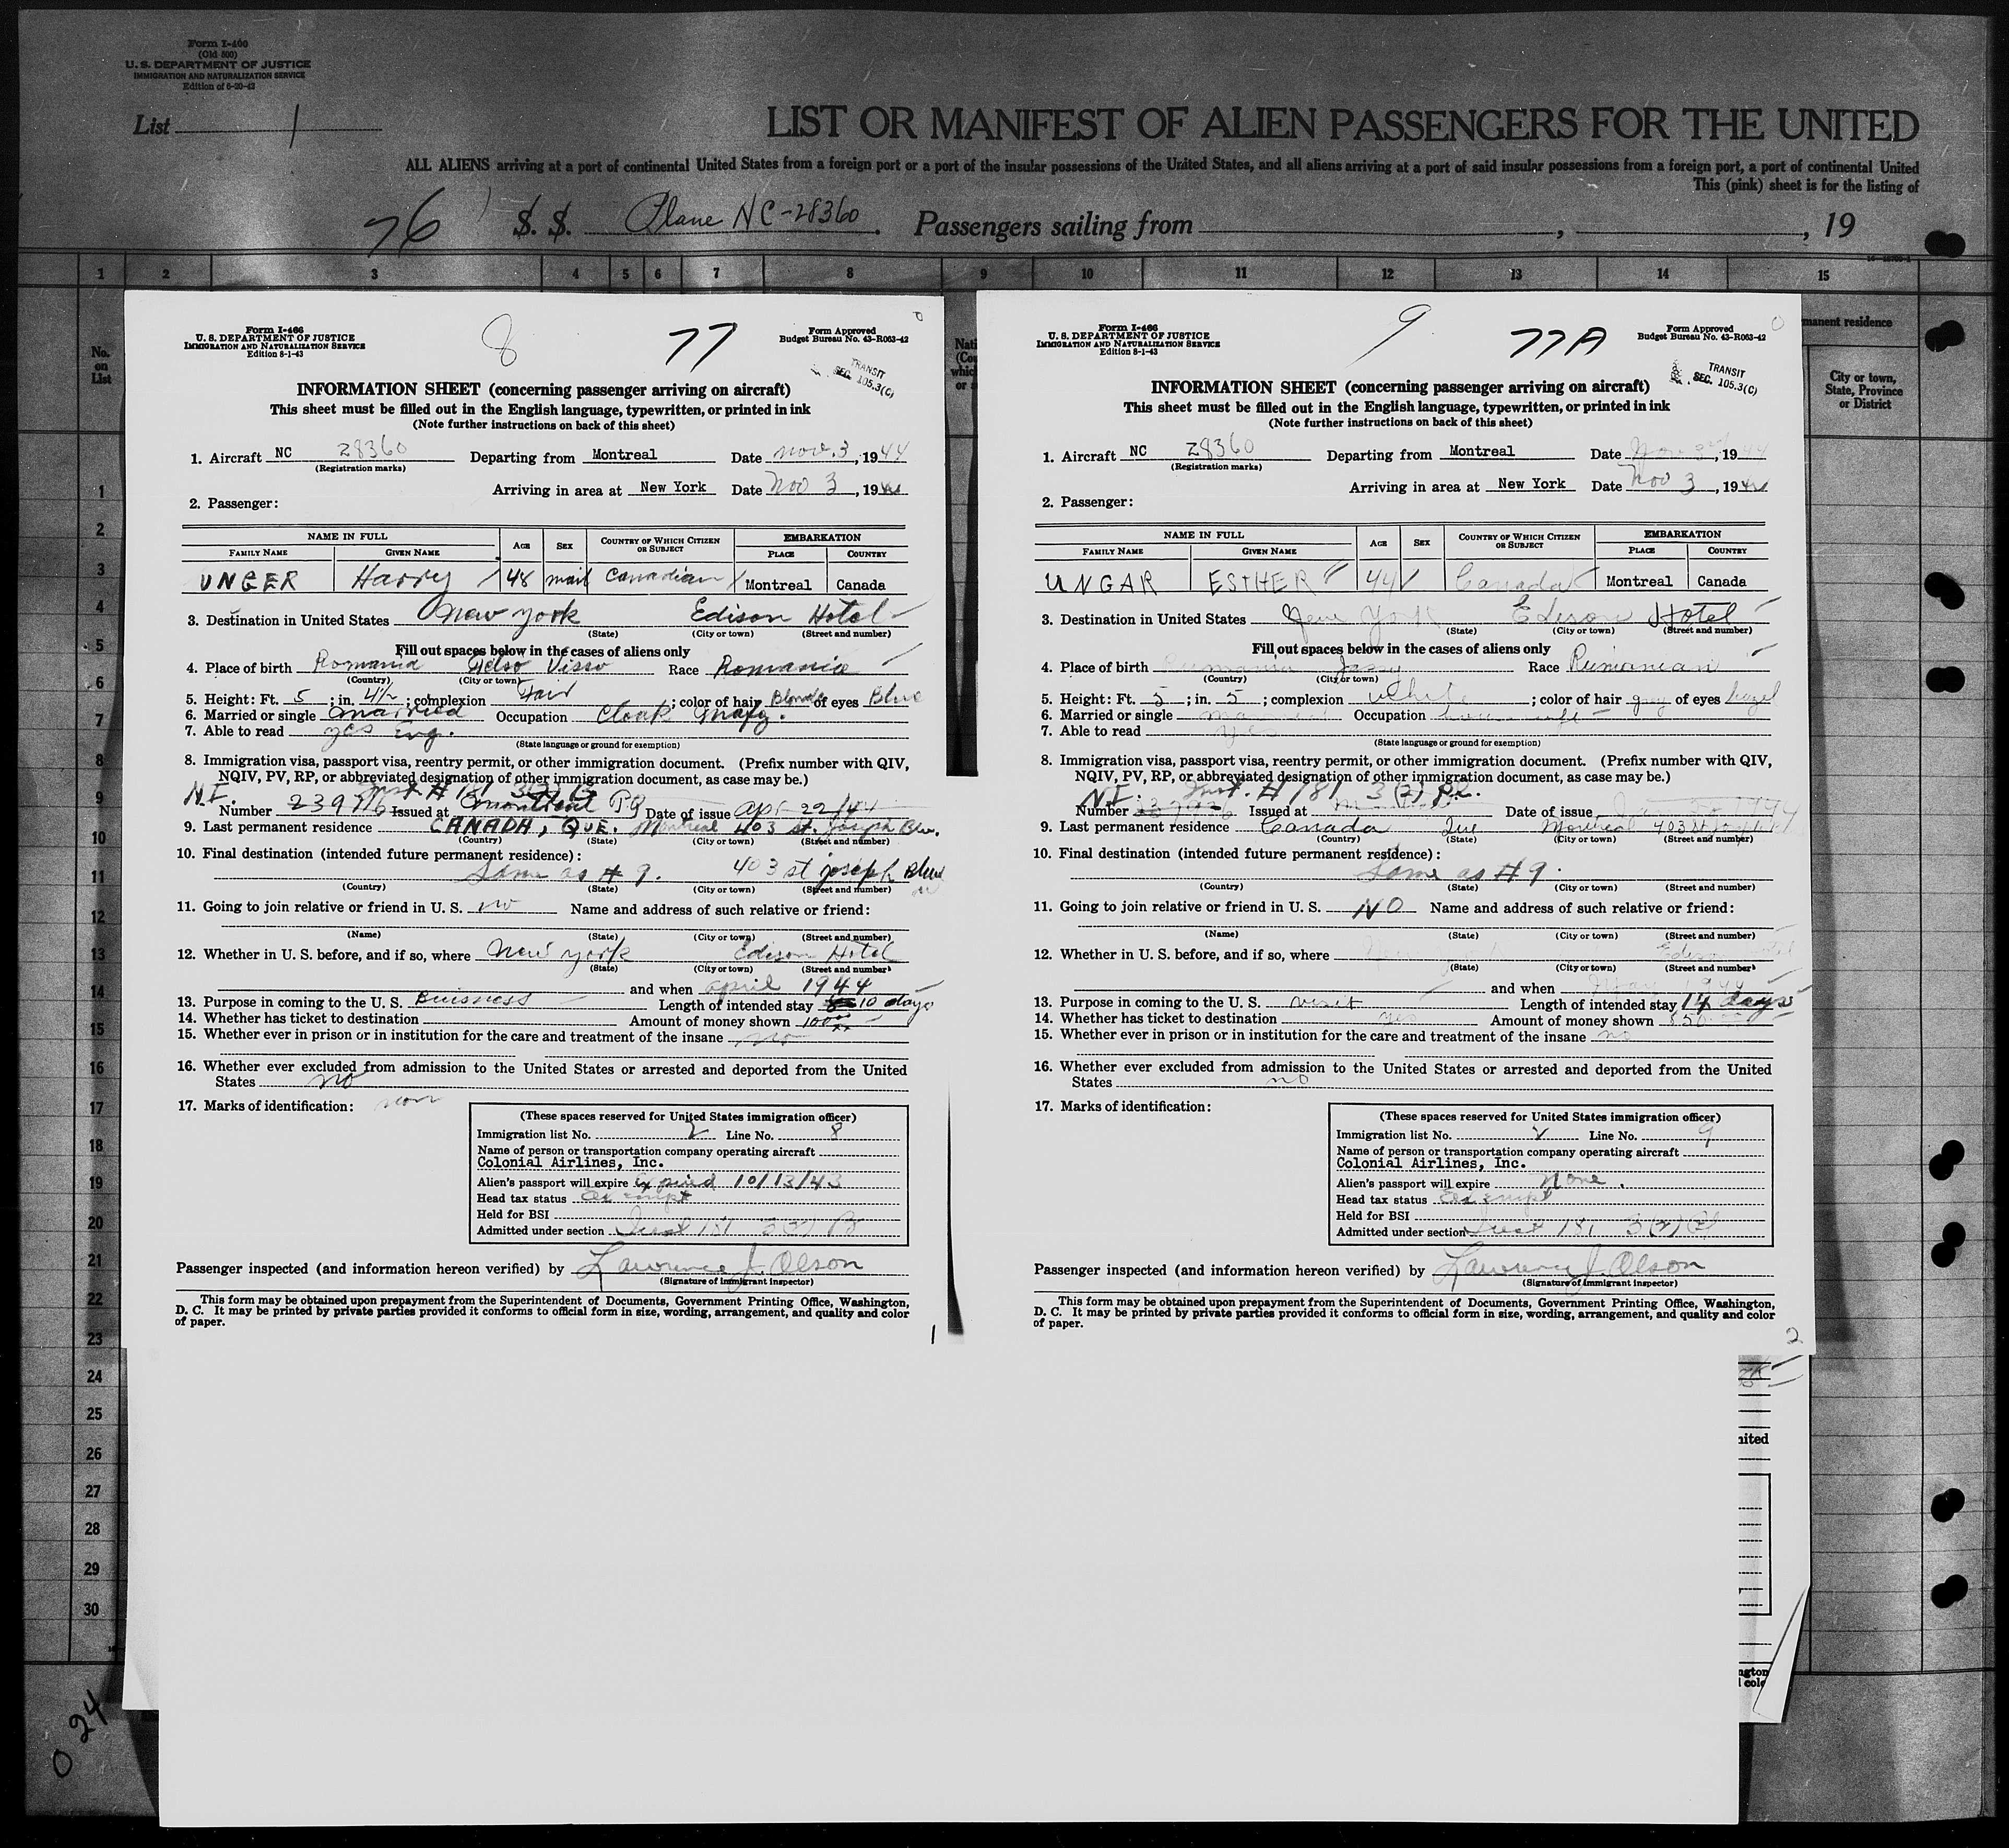 Form I-400
(Old 500)
U. S. DEPARTMENT OF JUSTICE
IMMIGRATION AND NATURALIZATION SERVICE
Edition of 6-20-42
List 1
LIST OR MANIFEST OF ALIEN PASSENGERS FOR THE UNITED
ALL ALIENS arriving at a port of continental United States from a foreign port or a port of the insular possessions of the United States, and all aliens arriving at a port of said insular possessions from a foreign port, a port of continental United
This (pink) sheet is for the listing of
76 S. S. Plane NC-28360. Passengers sailing from , , 19
1 2 3 4 5 6 7 8 9 10 11 12 13 14 15
No. on List
manent residence
City or town, State, Province or District
Form I-466
U. S. DEPARTMENT OF JUSTICE
IMMIGRATION AND NATURALIZATION SERVICE
Edition 8-1-43
8
77
Form Approved
Budget Bureau No. 43-R063-42
TRANSIT
SEC. 105.3(C)
INFORMATION SHEET (concerning passenger arriving on aircraft)
This sheet must be filled out in the English language, typewritten, or printed in ink
(Note further instructions on back of this sheet)
1. Aircraft NC 28360 Departing from Montreal Date Nov. 3, 1944
(Registration marks)
Arriving in area at New York Date Nov 3, 1944
2. Passenger:
NAME IN FULL AGE SEX COUNTRY OF WHICH CITIZEN OR SUBJECT EMBARKATION
FAMILY NAME GIVEN NAME PLACE COUNTRY
UNGER Harry 48 mail Canadian Montreal Canada
3. Destination in United States New York Edison Hotel
(State) (City or town) (Street and number)
Fill out spaces below in the cases of aliens only
4. Place of birth Romania Felso Visso Race Romania
(Country) (City or town)
5. Height: Ft. 5; in. 4½; complexion Fair; color of hair Blonde of eyes Blue
6. Married or single married Occupation Cloak Mafg.
7. Able to read yes Eng.
(State language or ground for exemption)
8. Immigration visa, passport visa, reentry permit, or other immigration document. (Prefix number with QIV,
NQIV, PV, RP, or abbreviated designation of other immigration document, as case may be.)
N.I. Inst # 181
Number 239776 Issued at Montreal PQ Date of issue Apr 22/44
9. Last permanent residence CANADA, QUE. Montreal 403 St. Joseph Blv.
(Country) (State) (City or town) (Street and number)
10. Final destination (intended future permanent residence):
Same as # 9. 403 st joseph Blvd
(Country) (State) (City or town) (Street and number)
11. Going to join relative or friend in U. S. no Name and address of such relative or friend:
(Name) (State) (City or town) (Street and number)
12. Whether in U. S. before, and if so, where New york Edison Hotel
(State) (City or town) (Street and number)
and when april 1944
13. Purpose in coming to the U. S. Buisness Length of intended stay 10 days
14. Whether has ticket to destination Amount of money shown 100
15. Whether ever in prison or in institution for the care and treatment of the insane no
16. Whether ever excluded from admission to the United States or arrested and deported from the United
States no
17. Marks of identification: non
(These spaces reserved for United States immigration officer)
Immigration list No. 2 Line No. 8
Name of person or transportation company operating aircraft
Colonial Airlines, Inc.
Alien's passport will expire expired 10/13/43
Head tax status Exempt
Held for BSI
Admitted under section Inst 181 3(2) B
Passenger inspected (and information hereon verified) by Lawrence J. Olson
(Signature of Immigrant Inspector)
This form may be obtained upon prepayment from the Superintendent of Documents, Government Printing Office, Washington,
D. C. It may be printed by private parties provided it conforms to official form in size, wording, arrangement, and quality and color
of paper.
1
Form I-466
U. S. DEPARTMENT OF JUSTICE
IMMIGRATION AND NATURALIZATION SERVICE
Edition 8-1-43
9
77A
Form Approved
Budget Bureau No. 43-R063-42
TRANSIT
SEC. 105.3(C)
INFORMATION SHEET (concerning passenger arriving on aircraft)
This sheet must be filled out in the English language, typewritten, or printed in ink
(Note further instructions on back of this sheet)
1. Aircraft NC 28360 Departing from Montreal Date Nov 3rd, 1944
(Registration marks)
Arriving in area at New York Date Nov 3, 1944
2. Passenger:
NAME IN FULL AGE SEX COUNTRY OF WHICH CITIZEN OR SUBJECT EMBARKATION
FAMILY NAME GIVEN NAME PLACE COUNTRY
UNGAR ESTHER 44 Canada Montreal Canada
3. Destination in United States New York Edison Hotel
(State) (City or town) (Street and number)
Fill out spaces below in the cases of aliens only
4. Place of birth Rumania Jassy Race Rumanian
(Country) (City or town)
5. Height: Ft. 5; in. 5; complexion White; color of hair grey of eyes hazel
6. Married or single Occupation housewife
7. Able to read yes
(State language or ground for exemption)
8. Immigration visa, passport visa, reentry permit, or other immigration document. (Prefix number with QIV,
NQIV, PV, RP, or abbreviated designation of other immigration document, as case may be.)
N.I. Inst. # 181 3(2)
Number Issued at Date of issue
9. Last permanent residence Canada Que Montreal 403 St Joseph
(Country) (State) (City or town) (Street and number)
10. Final destination (intended future permanent residence):
Same as # 9.
(Country) (State) (City or town) (Street and number)
11. Going to join relative or friend in U. S. NO Name and address of such relative or friend:
(Name) (State) (City or town) (Street and number)
12. Whether in U. S. before, and if so, where Edison Hotel
(State) (City or town) (Street and number)
and when
13. Purpose in coming to the U. S. visit Length of intended stay 14 days
14. Whether has ticket to destination yes Amount of money shown $50
15. Whether ever in prison or in institution for the care and treatment of the insane no
16. Whether ever excluded from admission to the United States or arrested and deported from the United
States no
17. Marks of identification:
(These spaces reserved for United States immigration officer)
Immigration list No. 2 Line No. 9
Name of person or transportation company operating aircraft
Colonial Airlines, Inc.
Alien's passport will expire None.
Head tax status Exempt
Held for BSI
Admitted under section Inst 181 3(2)
Passenger inspected (and information hereon verified) by Lawrence J. Olson
(Signature of Immigrant Inspector)
This form may be obtained upon prepayment from the Superintendent of Documents, Government Printing Office, Washington,
D. C. It may be printed by private parties provided it conforms to official form in size, wording, arrangement, and quality and color
of paper.
2
1
2
3
4
5
6
7
8
9
10
11
12
13
14
15
16
17
18
19
20
21
22
23
24
25
26
27
28
29
30
0 24